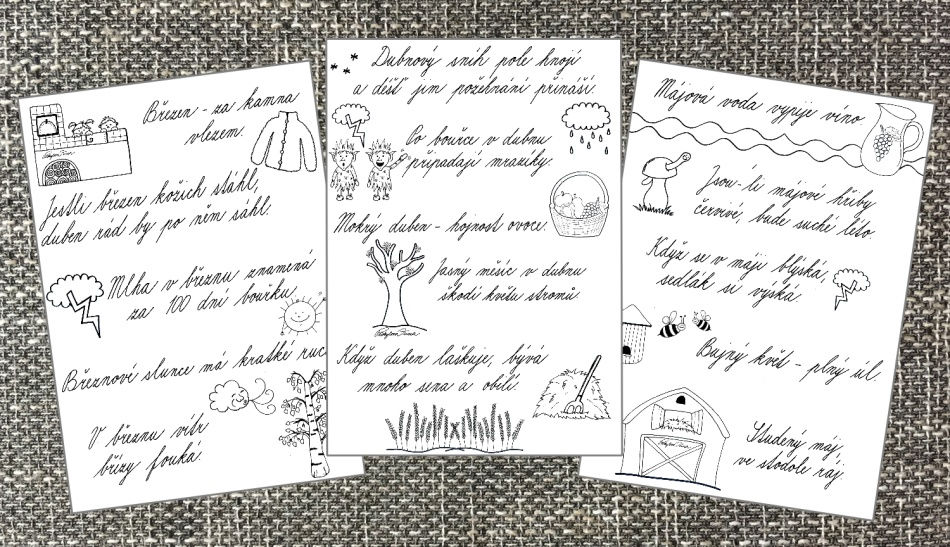 Březen - za kamna
vlezem.
Jestli březen kožich stáhl,
duben rád by po něm sáhl.
Mlha v březnu znamená
za 100 dní bouřku.
Březnové slunce má krátké ruc
V březnu vítr
břízy fouká.
Dubnový sníh pole hnojí
a déšť jim požehnání přináší.
Po bouřce v dubnu
připadají mrazíky.
Mokrý duben - hojnost ovoce.
Jasný měsíc v dubnu
škodí květu stromů.
Když duben laškuje, bývá
mnoho sena a obilí.
Májová voda vypije víno
Jsou-li májové hřiby
červivé, bude suché léto.
Když se v máji blýská,
sedlák si výská.
Bujný květ - plný úl.
Studený máj,
ve stodole ráj.